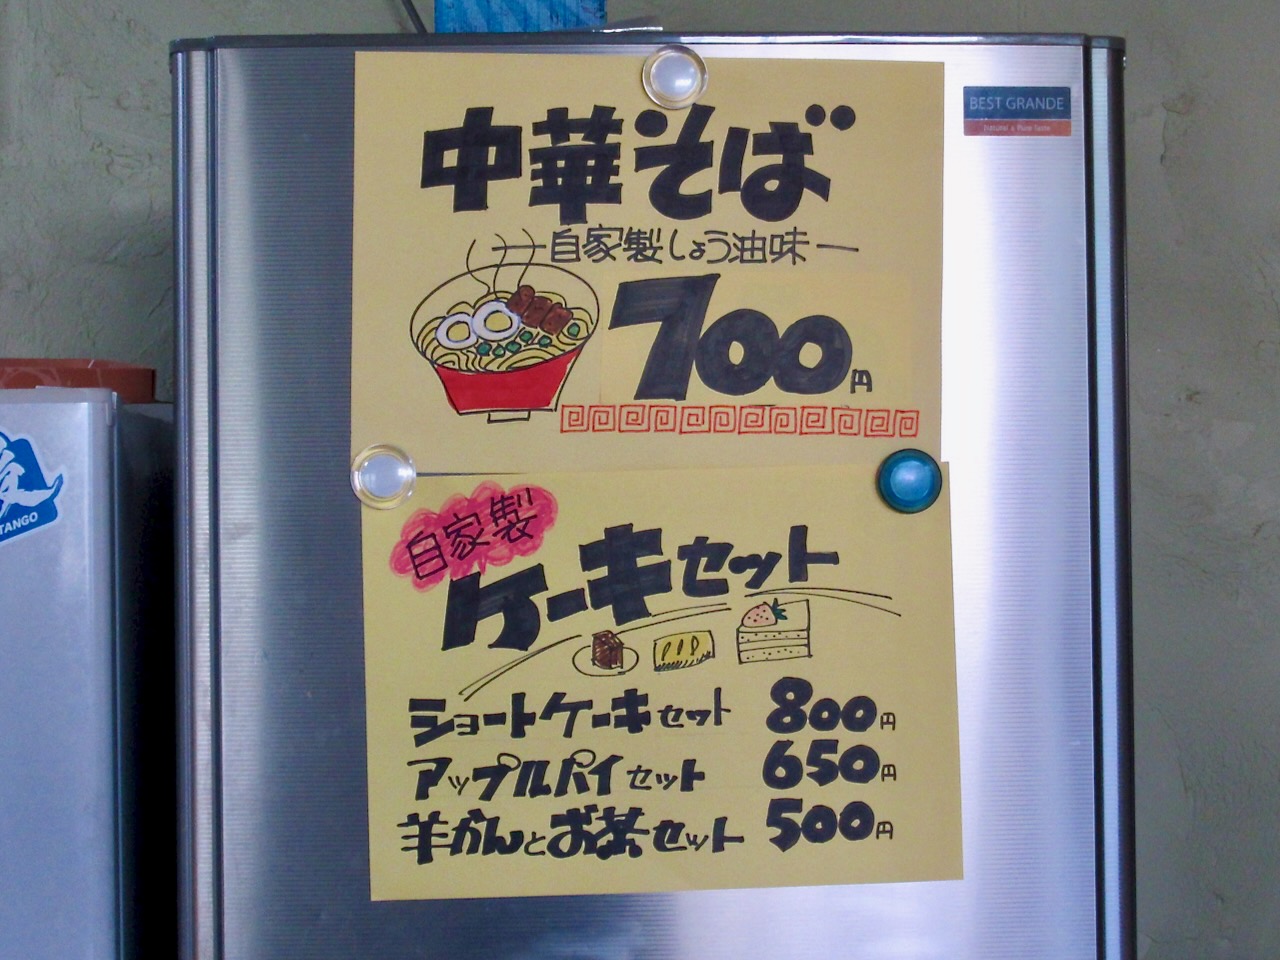 中華そば
自家製しょう油味
700円
自家製
ケーキセット
ショートケーキセット 800円
アップルパイセット 650円
羊かんとお茶セット 500円
BEST GRANDE
TANGO